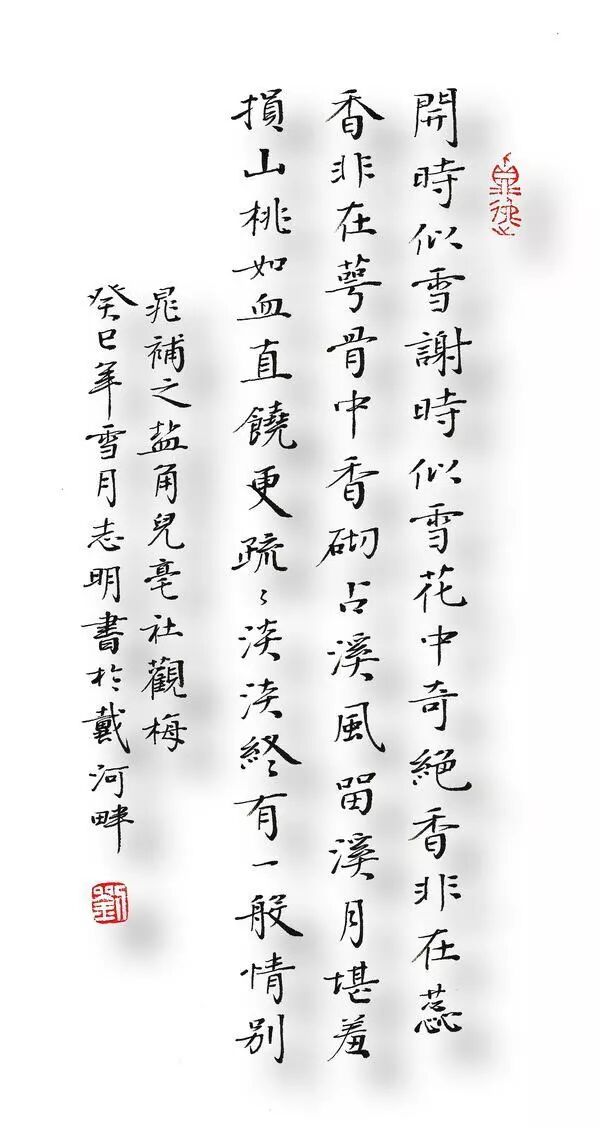 開時似雪謝時似雪花中奇絕香非在蕊
香非在萼骨中香砌占溪風留溪月堪羞
損山桃如血直饒更疏〻淡淡終有一般情別
晁補之盐角兒亳社觀梅
癸巳年雪月志明書於戴河畔
劉